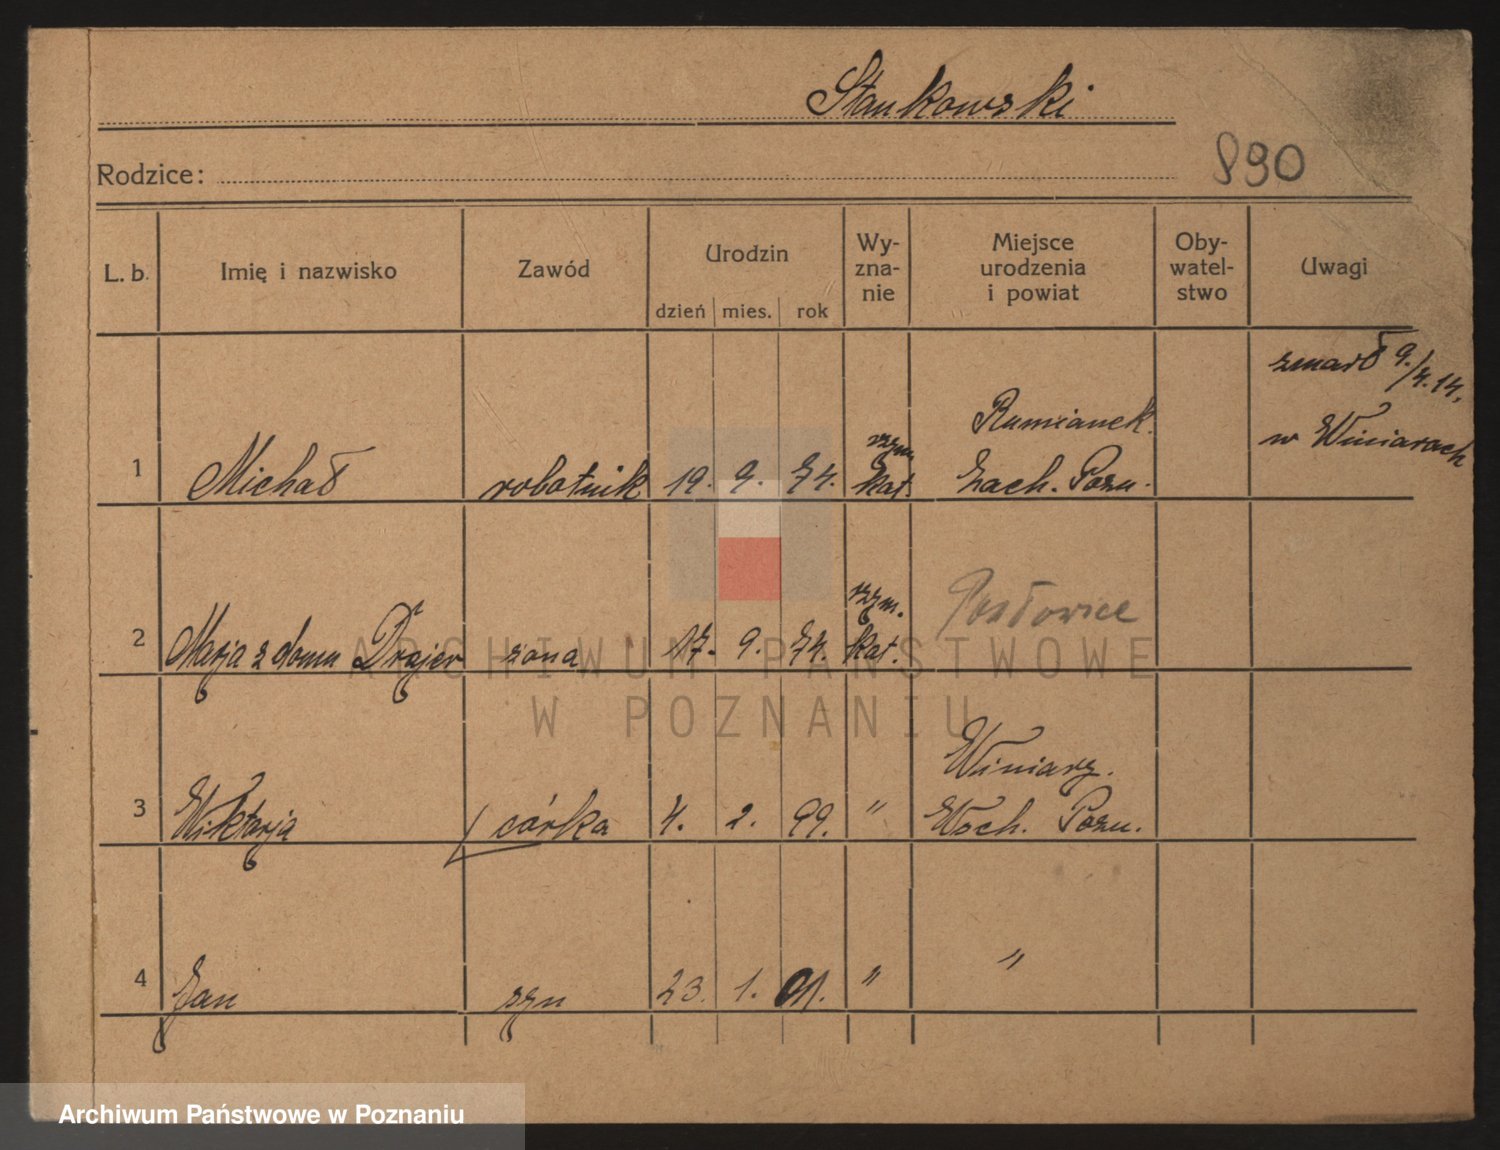 Stankowski
Rodzice:
890
L. b. Imię i nazwisko Zawód Urodzin dzień mies. rok Wy-zna-nie Miejsce urodzenia i powiat Oby-watel-stwo Uwagi
zmarł 9./4.14.
w Winiarach
rzym Rumianek.
1 Michał robotnik 19. 9. 74. kat. Zach. Pozn.
rzym.
2 Marja z domu Drajer żona 17. 9. 74. kat.
Winiary.
3 Wiktorja córka 4. 2. 99. " Wsch. Pozn.
4 Jan syn 23. 1. 01. " "
ARCHIWUM PAŃSTWOWE
W POZNANIU
Archiwum Państwowe w Poznaniu